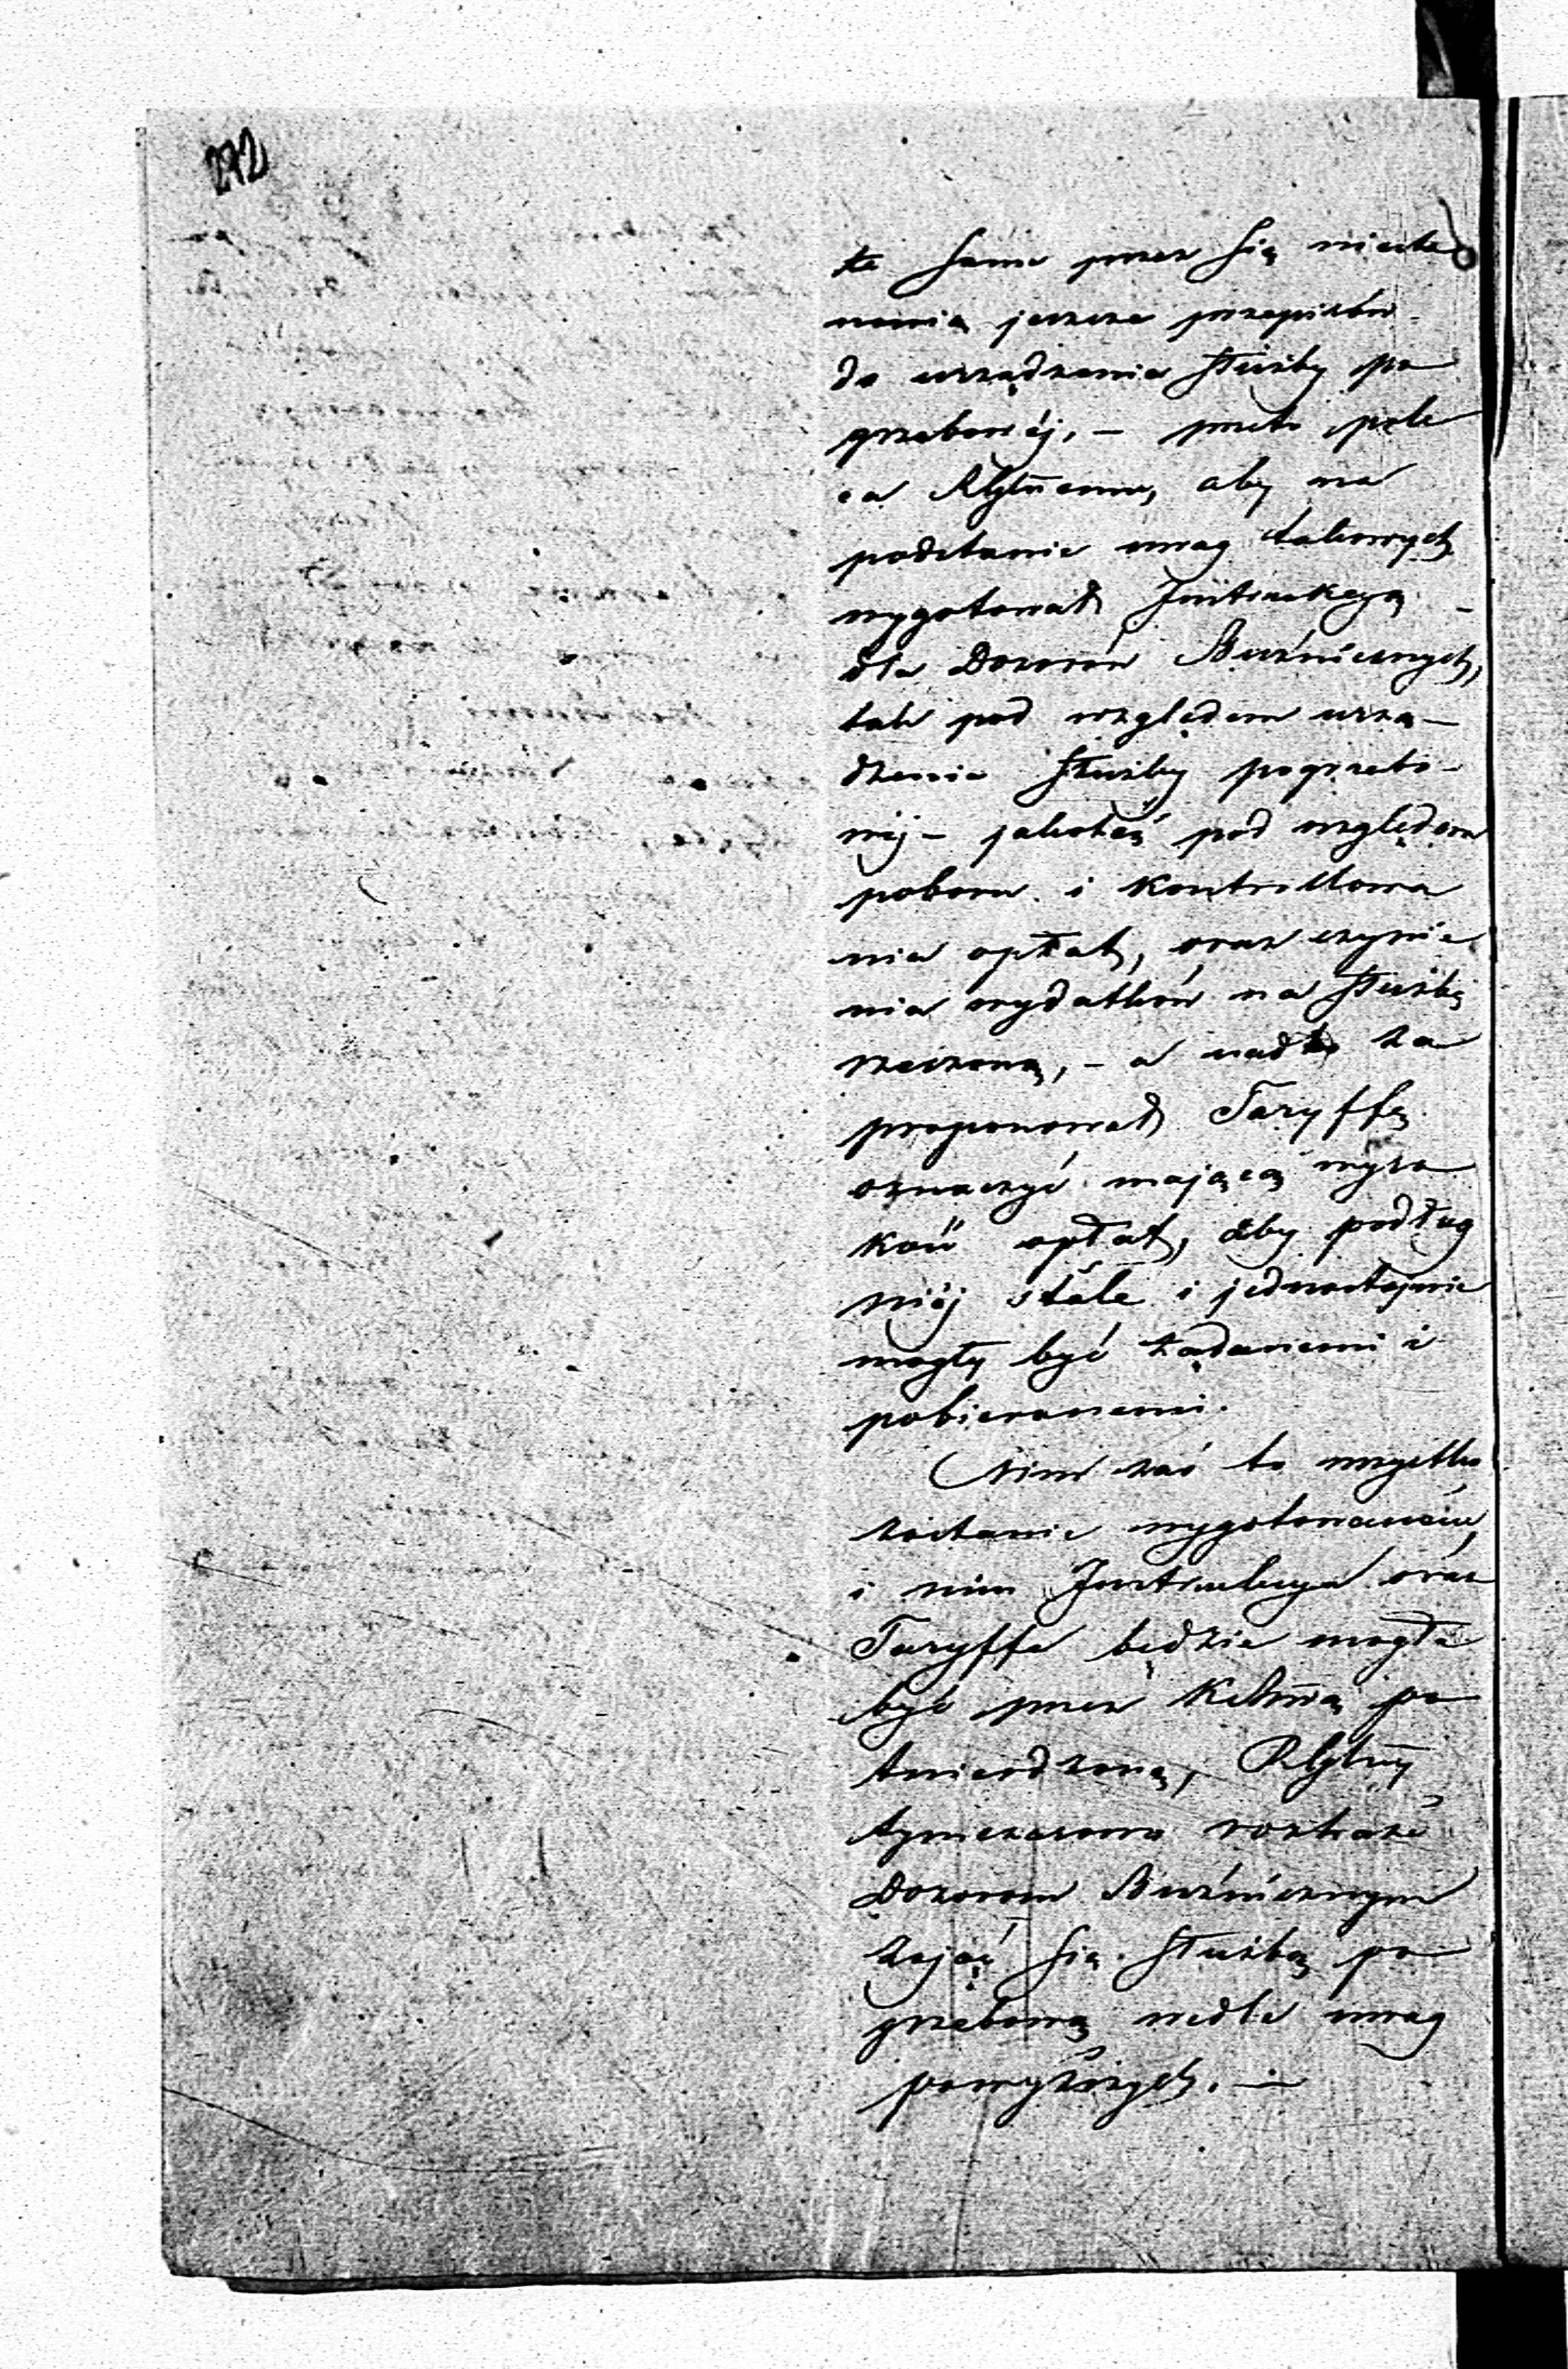 272
te same przez się nie sta
nowią jeszcze przepisów
do urządzenia służby po
grzebowéj, – przeto pole
ca Rządowi, aby na
podstawie uwag takowych
wygotował Instrukcyą
dla Dozorów Bużniczych,
tak pod względem urzą–
dzenia służby pogrzebo–
wéj – jakoteż pod względem
poboru i kontrollowa
nia opłat, oraz czynie
nia wydatków na służbę
rzeczoną, – a nadto za
proponował Taryffę
oznaczyć mającą wyso
kość opłat, aby podług
niéj stale i jednostajnie
mogły być żądanemi i
pobieranemi.
Nim zaś to wszystko
zostanie wygotowaném,
i nim Instrukcya oraz
Taryffa będzie mogła
być przez po
twierdzoną,
tymczasowo rozkaże
Dozorom Bużniczym
zająć się służbą po
grzebową wedle uwag
powyższych. –